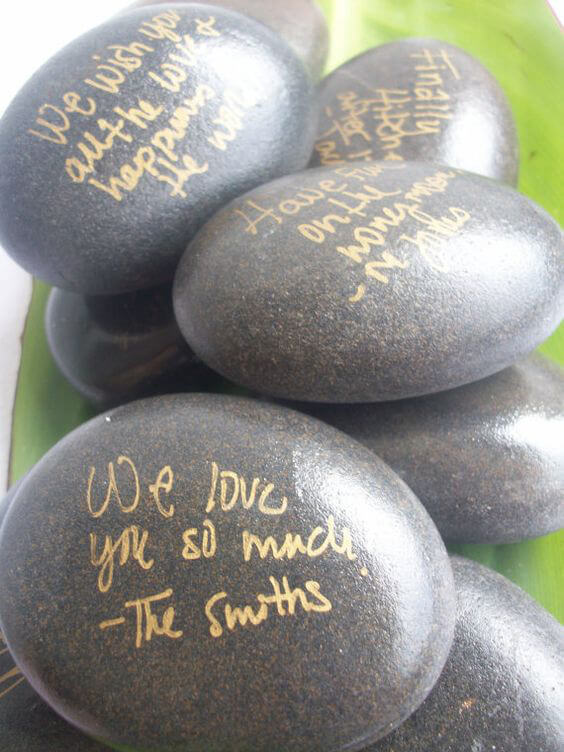 We wish you
all the love &
happiness
the
Finally
Have Fun
on the
honeymoon
We love
you so much.
-The Smiths